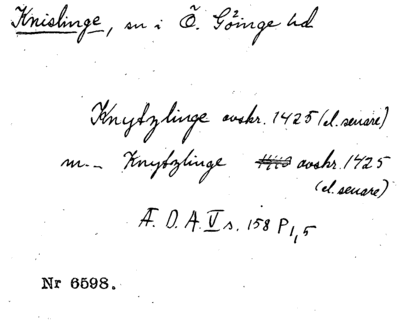 Knislinge, sn i Ö. Göinge hd
Knytzlinge avskr. 1425 (el. senare)
m. - Knytzlinge avskr. 1425
(el. senare)
Æ. D. A. V s. 158 P 1,5
Nr 6598.